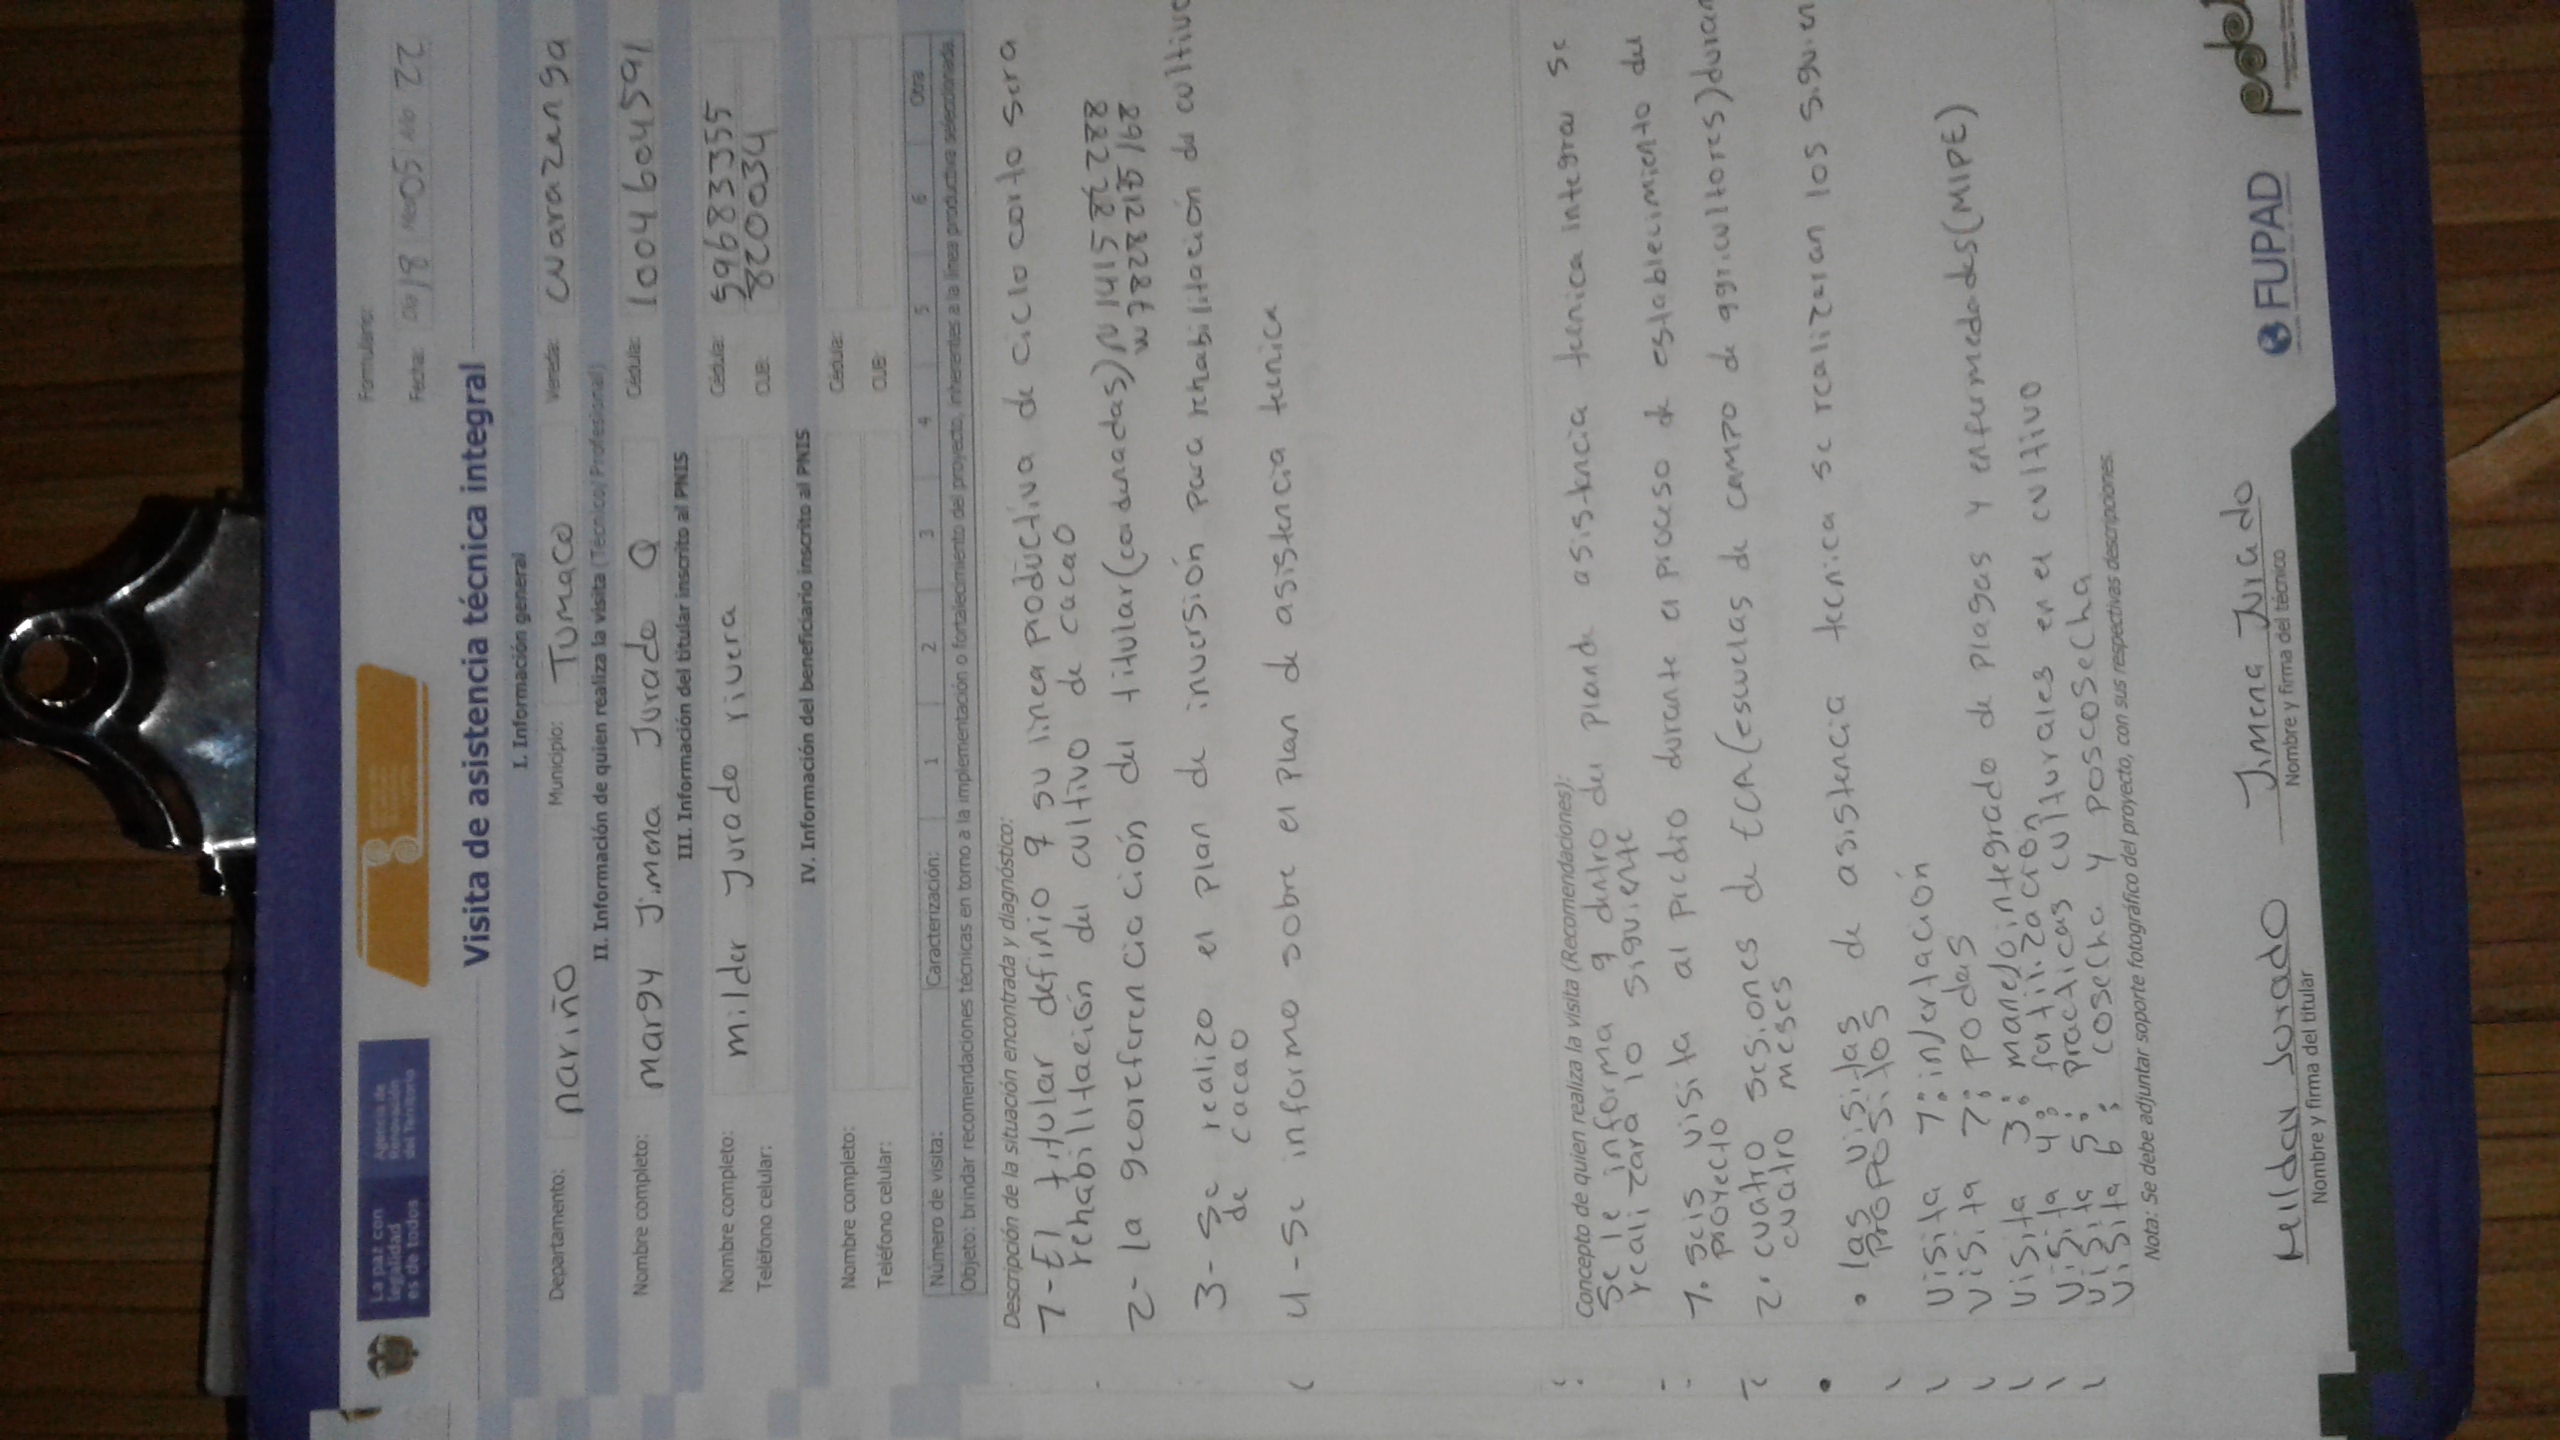 La paz con
legalidad
es de todos
Agencia de
Renovación
del Territorio
Formulario:
Fecha: Día 18 Mes 05 Año 22
Visita de asistencia técnica integral
I. Información general
Departamento: nariño Municipio: Tumaco Vereda: cuarazanga
II. Información de quien realiza la visita (Técnico/Profesional)
Nombre completo: margy Jimena Jurado Q Cédula: 1004604591
III. Información del titular inscrito al PNIS
Nombre completo: milder Jurado rivera Cédula: 59683355
Teléfono celular: CUB: 820034
IV. Información del beneficiario inscrito al PNIS
Nombre completo: Cédula:
Teléfono celular: CUB:
Número de visita: Caracterización: 1 2 3 4 5 6 Otra
Objeto: brindar recomendaciones técnicas en torno a la implementación o fortalecimiento del proyecto, inherentes a la línea productiva seleccionada.
Descripción de la situación encontrada y diagnóstico:
1-El titular definio q su linea productiva de ciclo corto sera
rehabilitación del cultivo de cacao
2-la georeferenciación del titular(cordenadas)N1415
3-se realizo el plan de inversión para rehabilitación de cultivo
de cacao
4-se informo sobre el plan de asistencia tecnica
Concepto de quien realiza la visita (Recomendaciones):
se le informa q dentro del plan de asistencia tecnica integral se
realizara lo siguiente
1. seis visita al predio durante el proceso de establecimiento del
proyecto
2. cuatro sesiones de ECA(escuelas de campo de agricultores)duran
cuatro meses
• las visitas de asistencia tecnica se realizaran los siguien
propositos
visita 1: injertación
visita 2: podas
visita 3: manejo integrado de plagas y enfermedades(MIPE)
visita 4: fertilización
visita 5: practicas culturales en el cultivo
visita 6: cosecha y poscosecha
Nota: Se debe adjuntar soporte fotográfico del proyecto, con sus respectivas descripciones.
Milday Jurado Jimena Jurado
Nombre y firma del titular Nombre y firma del técnico
FUPAD